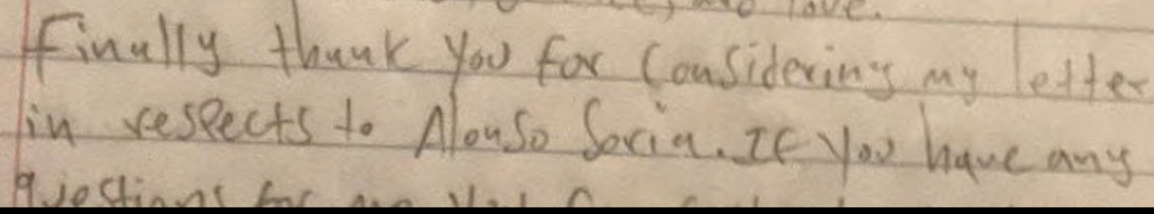 love.
Finally thank you for considering my letter
in respects to Alonso Soria. If you have any
questions for me you